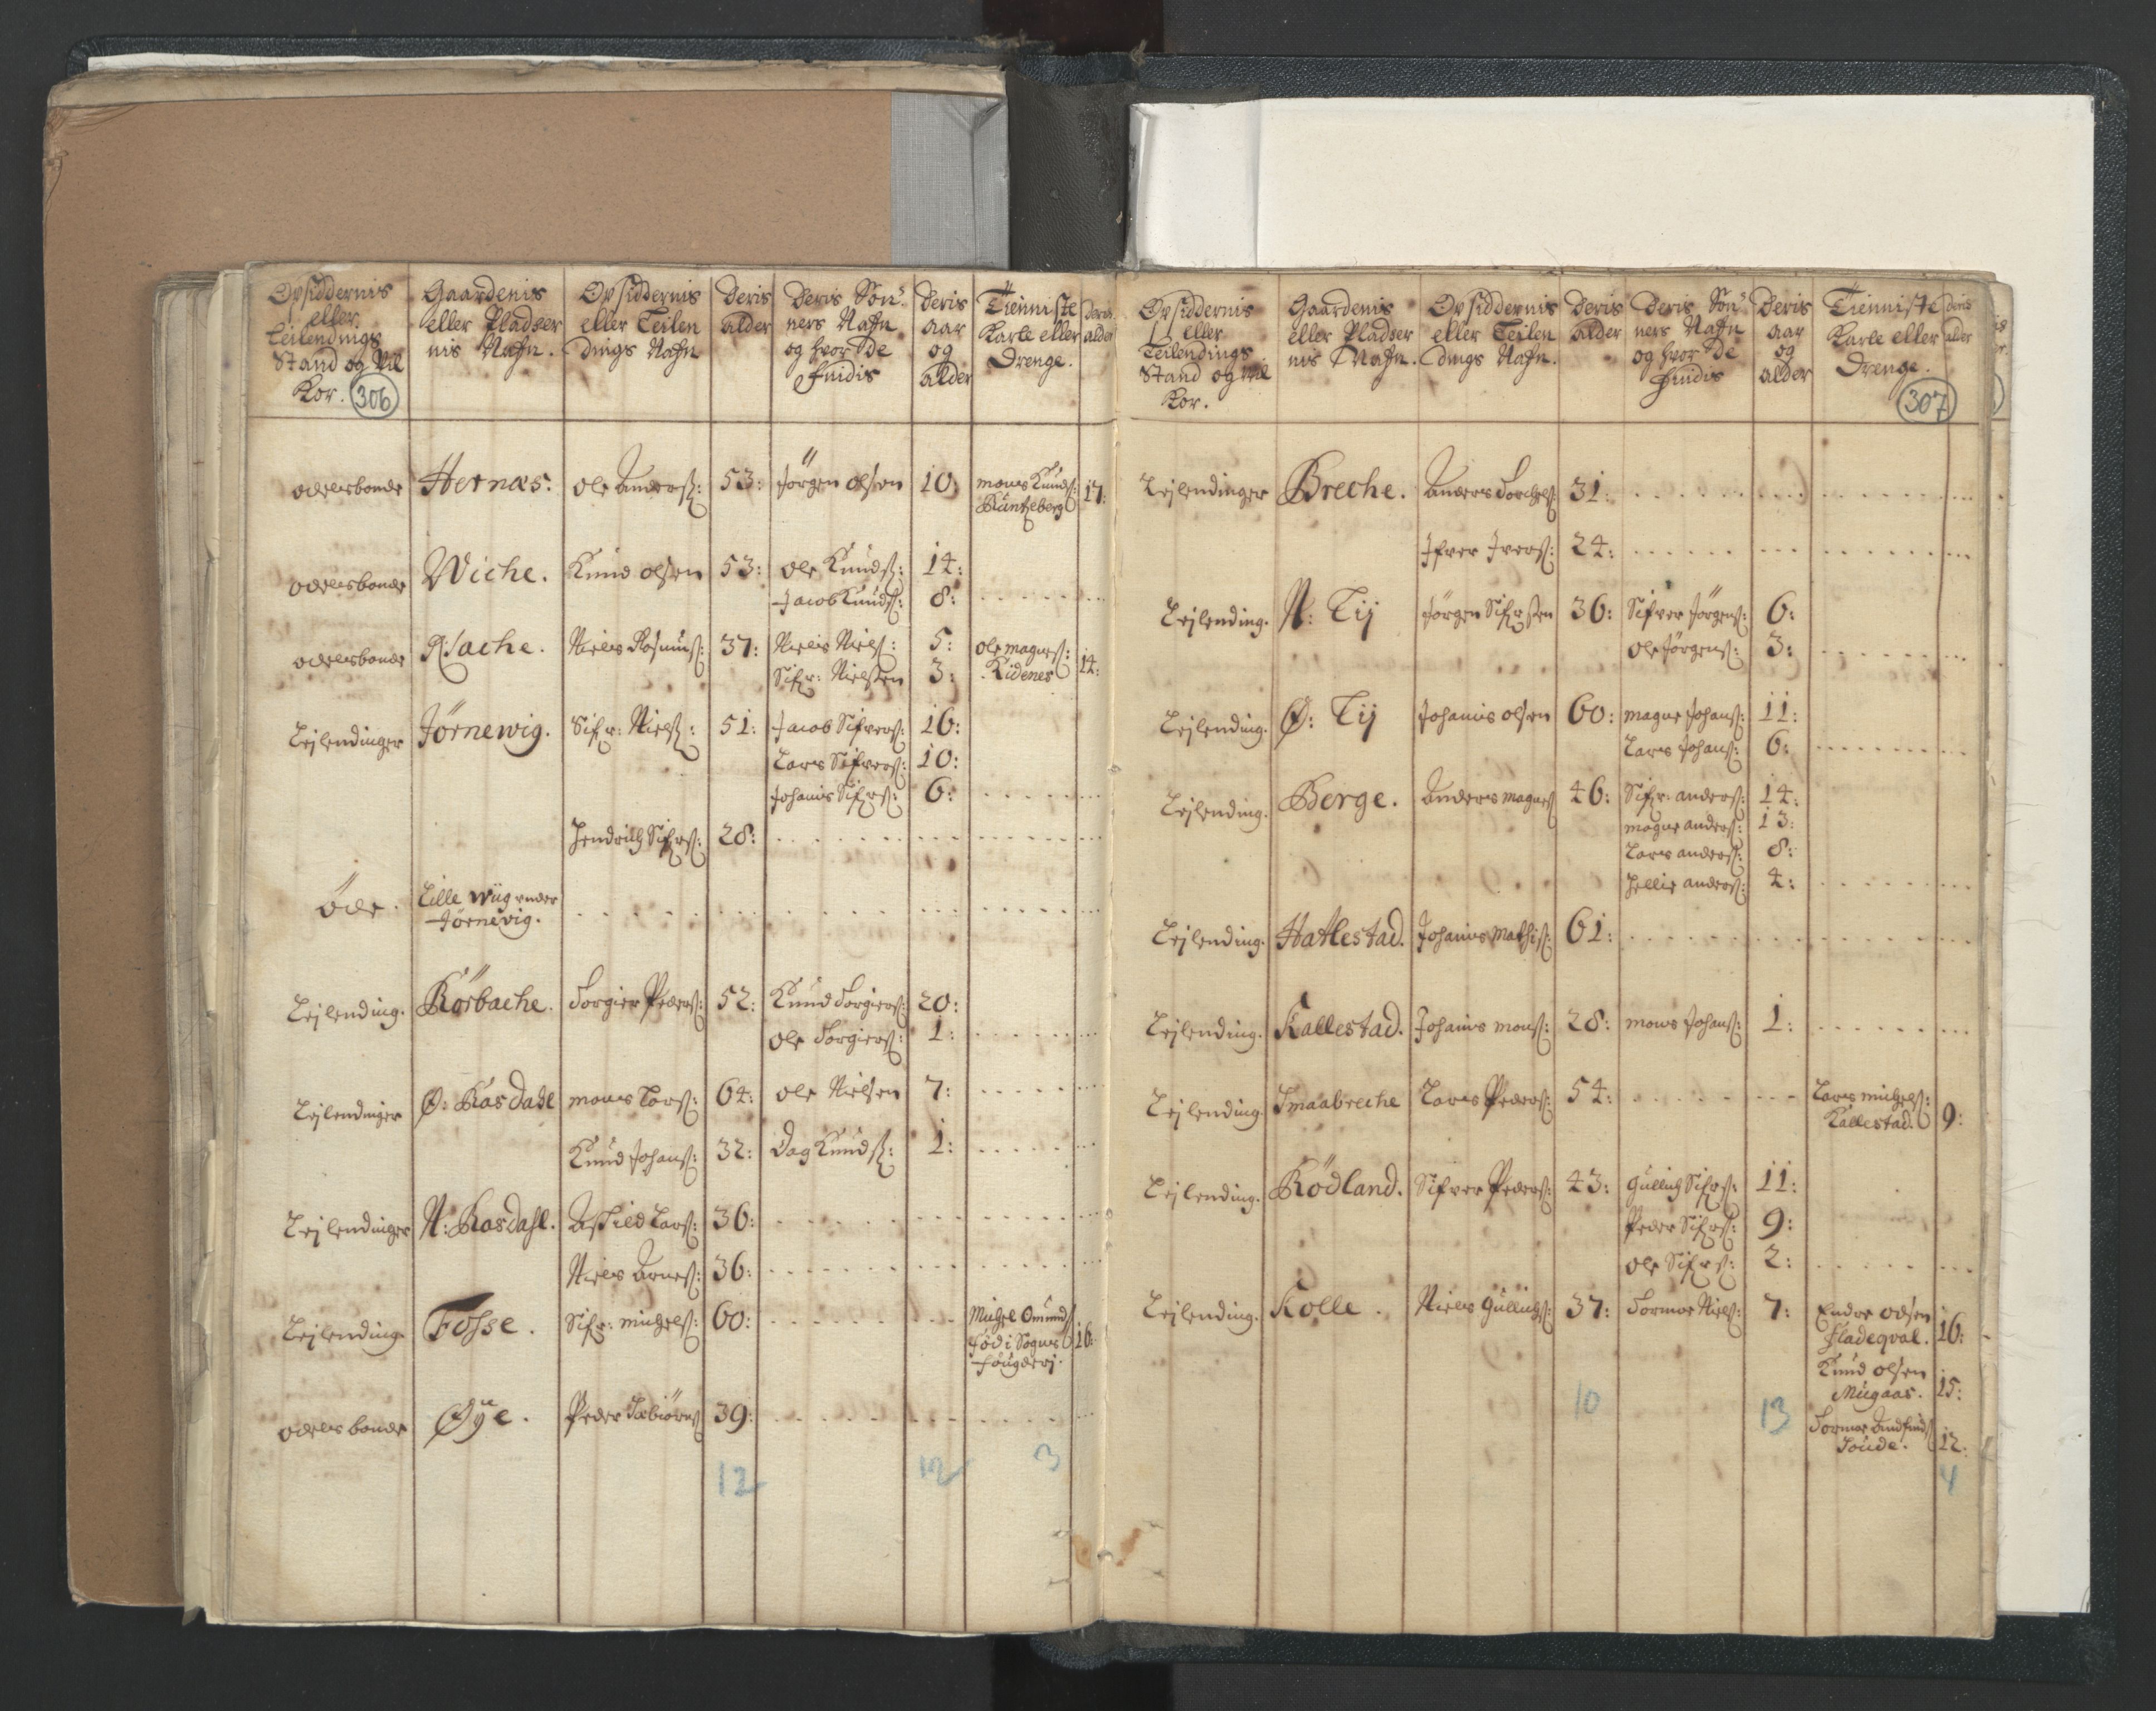 Opsiddernis eller Leilendings Stand og Vil Kor. 306 | Gaardenis eller Pladser nis Nafn. | Opsiddernis eller Leilen dings Nafn | Deris alder | Deris Søn- ners Nafn og hvor de findis | Deris aar og alder | Tienniste Karle eller Drenge. | Deris alder
odelsbonde | Hernæs: | Ole Anderss: | 53: | Jörgen Olsen | 10: | Mons Knuds: Küntzeberg | 17:
odelsbonde | Wiche. | Knud Olsen | 53: | Ole Knudss: | 14:
Jacob Knudss: | 8:
odelsbonde | Niels Rasmuss: | 37: | Niels Niels: | 5: | Ole Magness: Kidenes | 14:
Sifr: Nielsen | 3:
Leilendinger | Jörnewig. | Sifr: Nielss: | 51: | Jacob Sifvers: | 16:
Lars Sifvers: | 10:
Johanis Sifrs: | 6:
Hendrich Sifrs: | 28:
Öde. | Lille Wiig under Jörnevig.
Leilending. | Rörbache. | Torgier Peders: | 52: | Knud Torgiers: | 20:
Ole Torgiers: | 1:
Leilendinger | Ø: Rasdahl | Mons Lars: | 64: | Ole Nielsen | 7:
Knud Johans: | 32: | Dag Knudss: | 1:
Leilendinger | N: Rasdahl. | Lars: | 36:
Niels Arnes: | 36:
Leilending. | Fosse. | Sifr: Michels: | 60: | Michel Omunds: Fød i Sogns Fougderj. | 16:
odelsbonde | Øÿe. | Peder | 39:
12 | 12 | 3
Opsiddernis eller Leilendings Stand og Vil Kor. | Gaardenis eller Pladser nis Nafn. | Opsiddernis eller Leilen dings Nafn. | Deris alder | Deris Søn- ners Nafn og hvor de findis | Deris aar og alder | Tienniste Karle eller Drenge. 307 | Deris alder
Leilendinger | Breche. | Anders Torchels: | 31:
Ifver Ivers: | 24:
Leilending. | N: Tij | Jörgen Sifrsen | 36: | Sifver Jörgens: | 6:
Ole Jörgens: | 3:
Leilending. | Ø: Tij | Johanis Olsen | 60: | Magne Johans: | 11:
Lars Johans: | 6:
Leilending. | Berge. | Anders Magness | 46: | Sifr: Anders: | 14:
Magne Anders: | 13:
Lars Anders: | 8:
Hellie Anders: | 4:
Leilending. | Hatlestad. | Johanis Mathis: | 61:
Leilending. | Kallestad. | Johanis Mons: | 28: | Mons Johans: | 1:
Leilending. | Smaabreche | Lars Peders: | 54: | Lars Michels: Kallestad. | 9:
Leilending. | Rödland. | Sifver Peders: | 43: | Gullich Sifrs: | 11:
Peder Sifrs: | 9:
Ole Sifrs: | 2:
Leilending. | Kolle. | Niels Gullichs: | 37: | Tormoe Niels: | 7: | Endre Odsen Fladeqval. | 16:
Knud Olsen Mügaas. | 15:
Tormoe | 12:
10 | 13 | 4